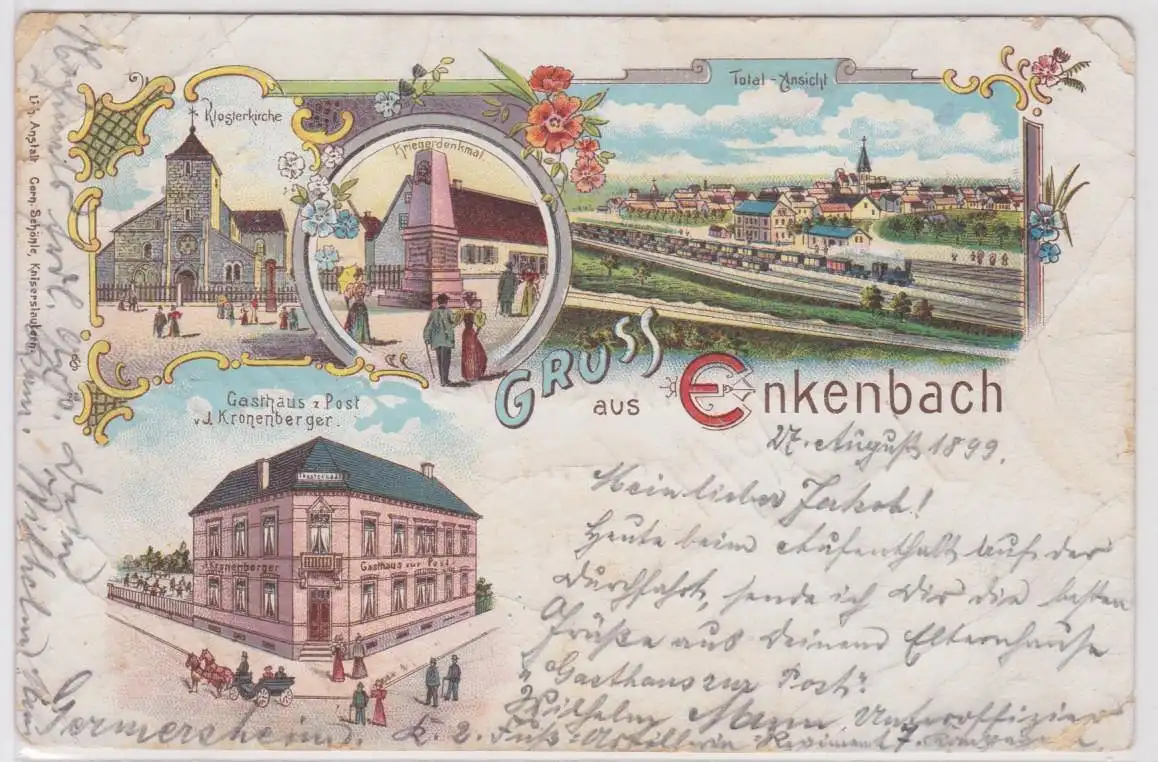 Total-Ansicht
Klosterkirche
Kriegerdenkmal.
Lith. Anstalt Corn. Schönle, Kaiserslautern.
GRUSS
aus Enkenbach
Gasthaus z Post
v J. Kronenberger.
J. Kronenberger
Gasthaus zur Post
27. August 1899.
Mein lieber Jakob!
Heute beim Aufenthalt auf der
Durchfahrt, sende ich Dir die besten
Grüße aus Deinem Elternhause
"Gasthaus zur Post".
Wilhelm Mann, Unteroffizier
Germersheim. K. 2. Fuß-Artillerie-Regiment 7.